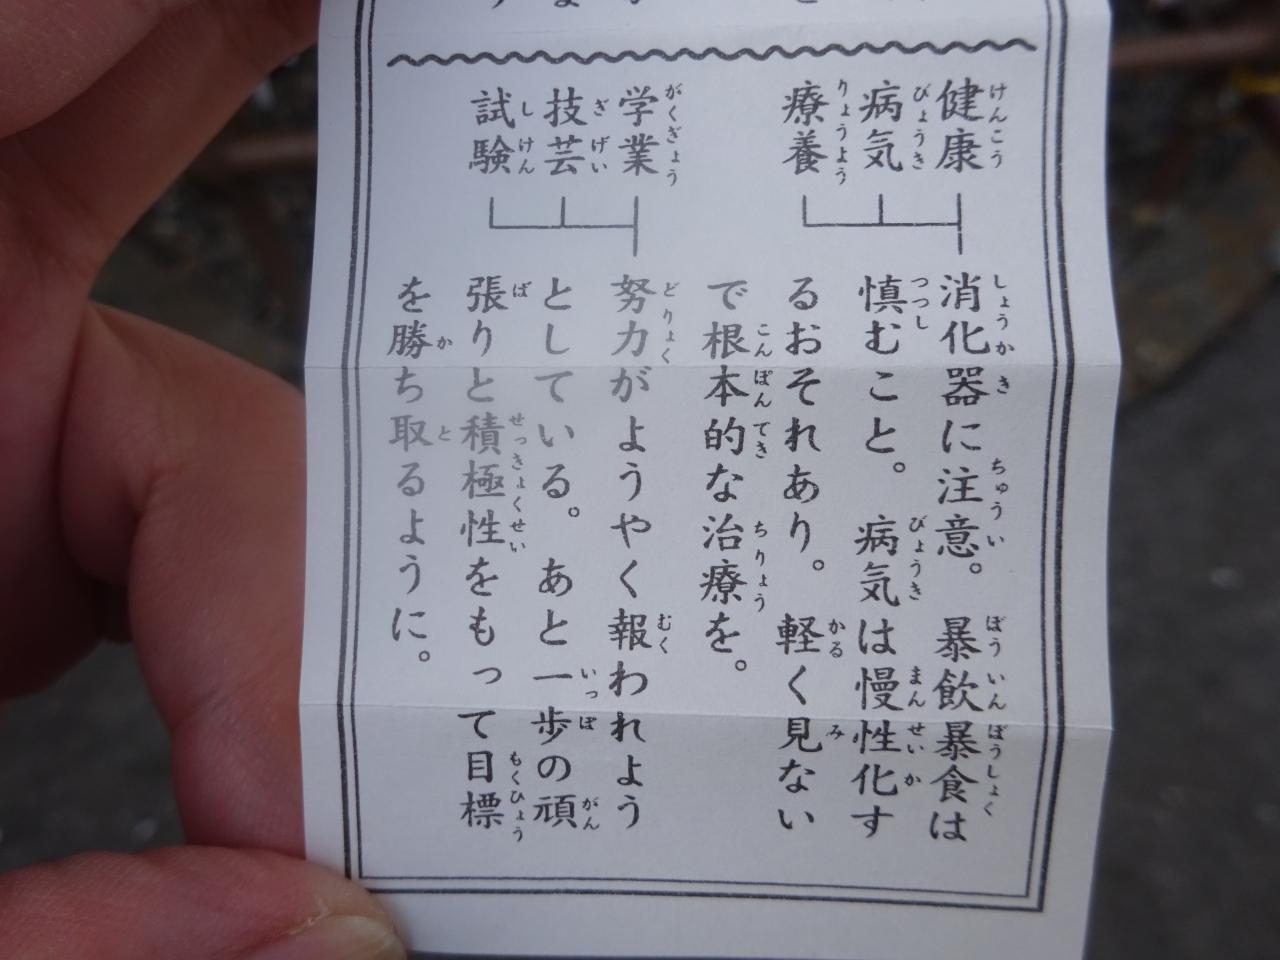 健康
病気
療養
消化器に注意。暴飲暴食は
慎むこと。病気は慢性化す
るおそれあり。軽く見ない
で根本的な治療を。
学業
技芸
試験
努力がようやく報われよう
としている。あと一歩の頑
張りと積極性をもって目標
を勝ち取るように。